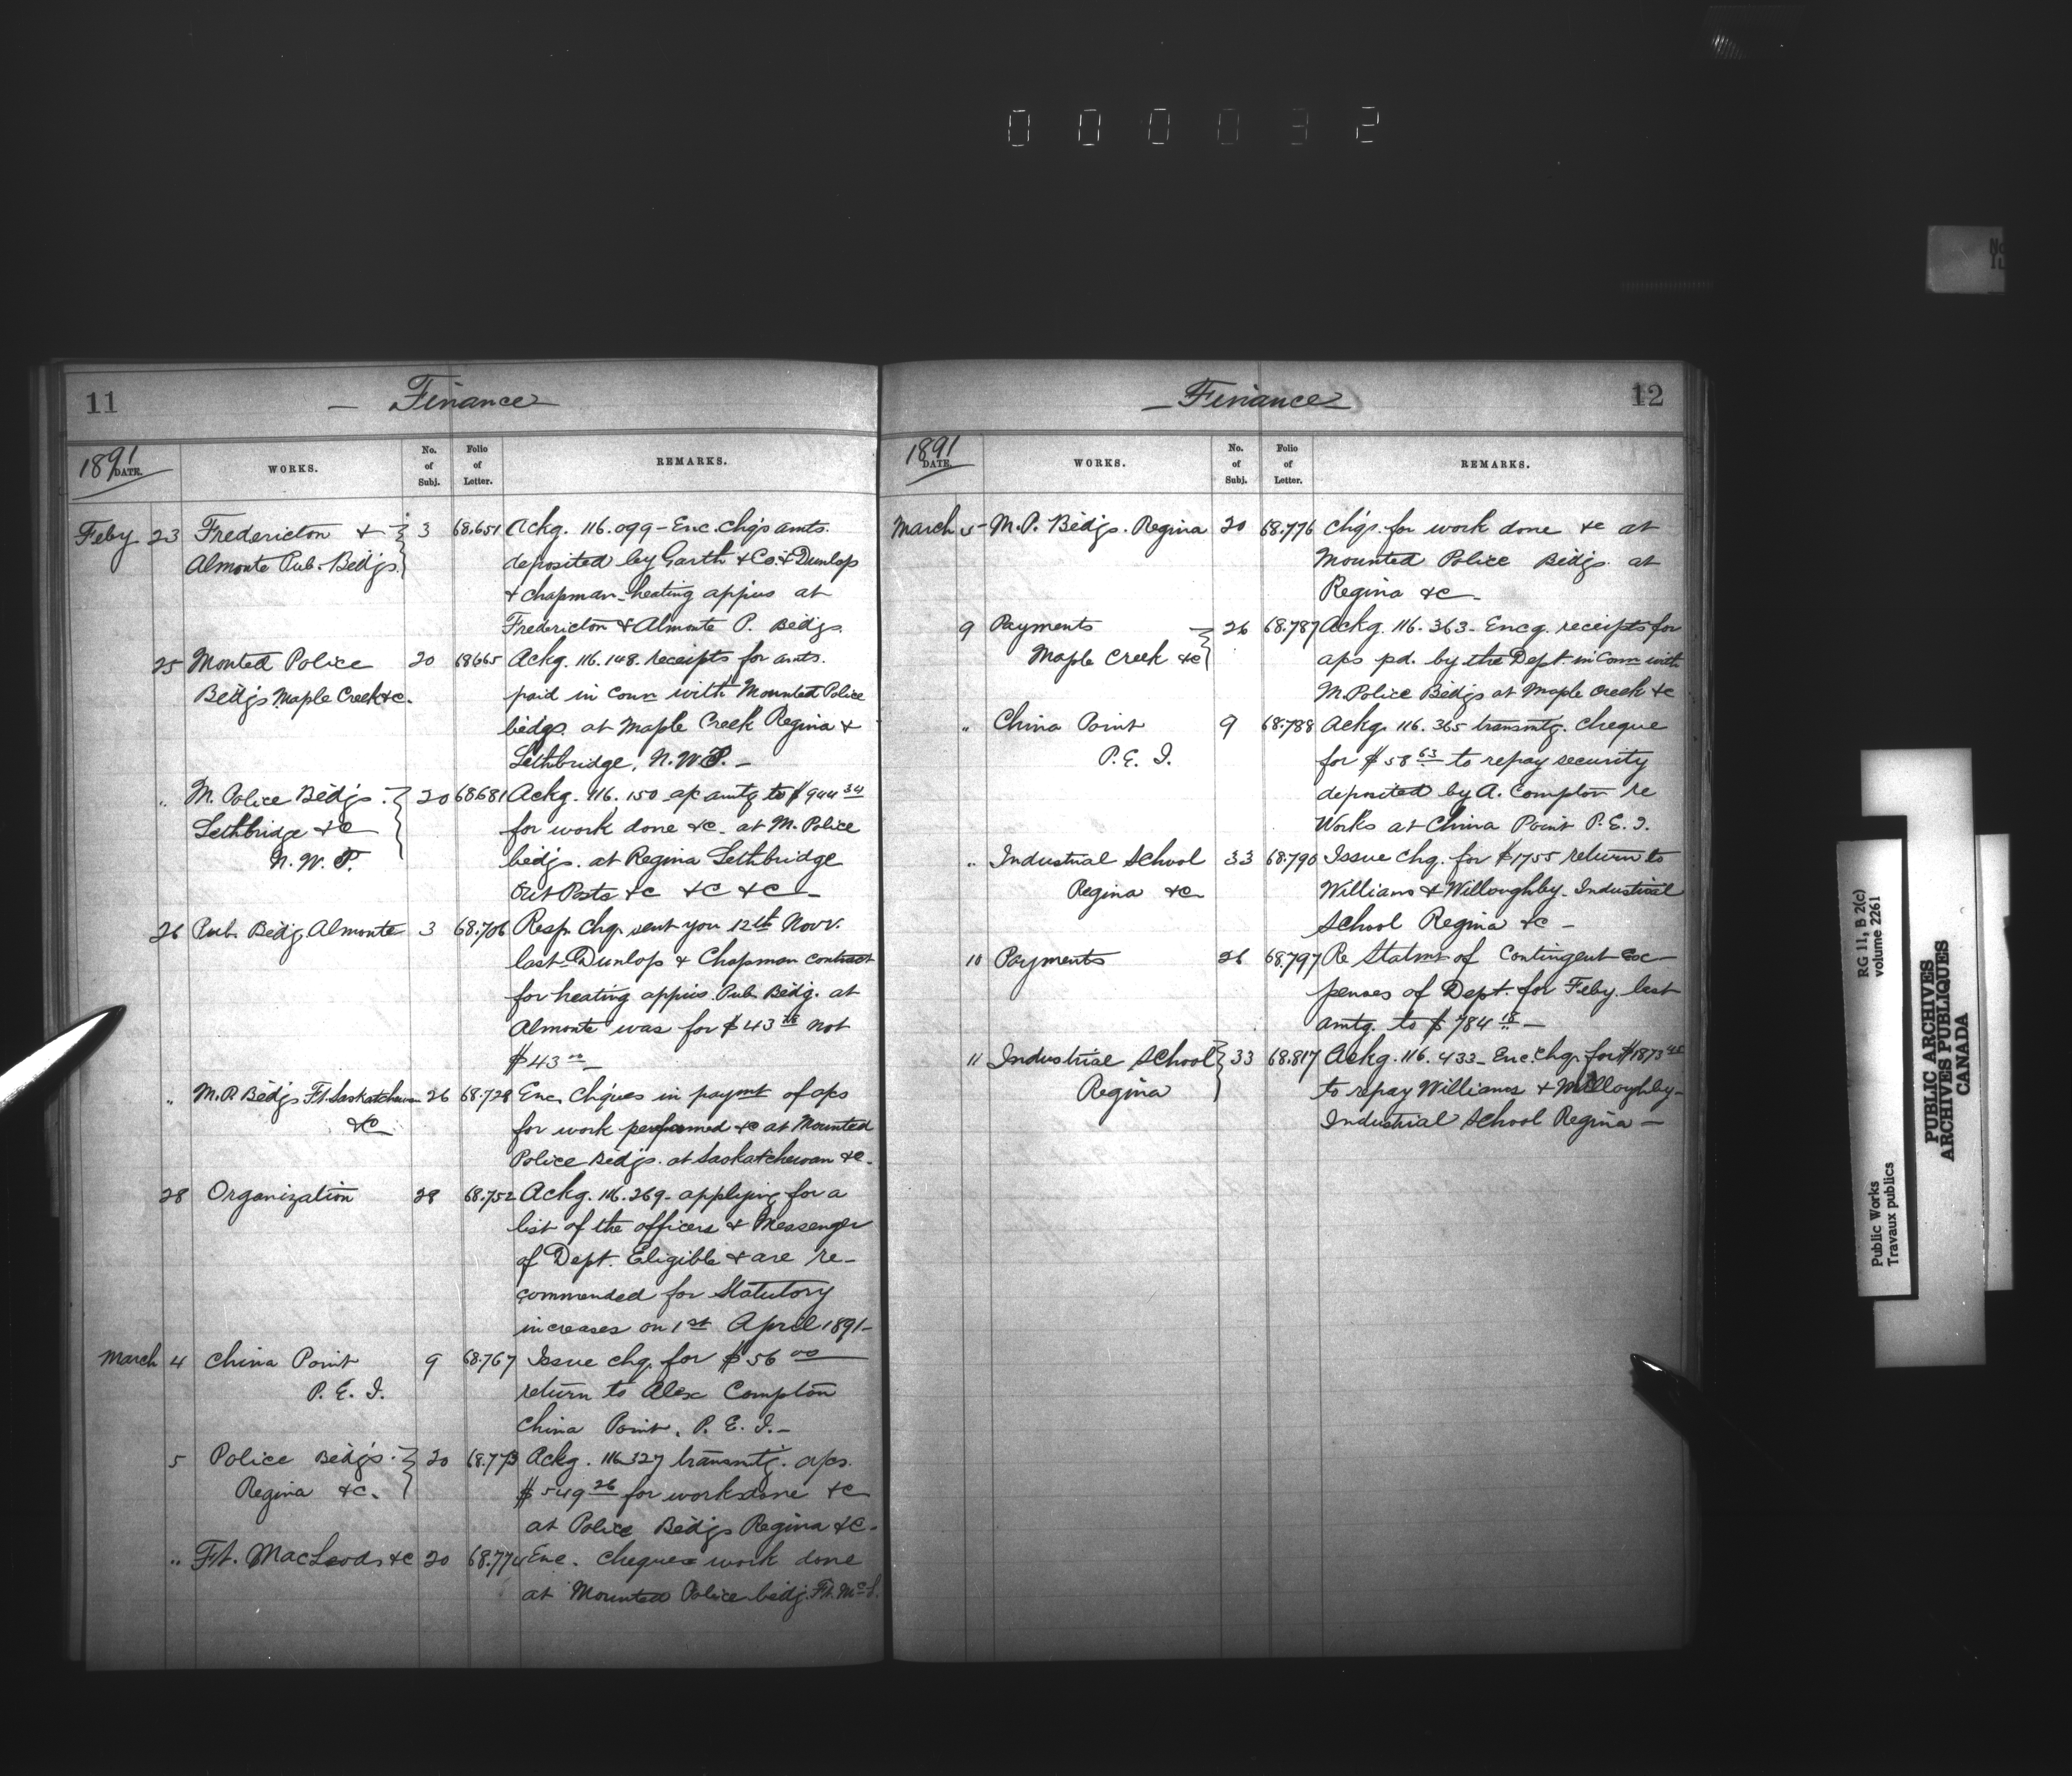 000032
11
— Finance
1891
DATE.
WORKS.
No. of Subj.
Folio of Letter.
REMARKS.
Feby 23 Fredericton & 3 68.651 Ackg. 116.099 - Enc. chqs amts.
Almonte Pub. Bldgs. deposited by Garth & Co. & Dunlop
& Chapman - heating appius at
Fredericton & Almonte P. Bldgs.
25 Monted Police 20 68665 Ackg. 116.148. receipts for amts.
Bldgs Maple Creek &c. paid in conn with Mounted Police
bldgs. at Maple Creek Regina &
Lethbridge, N.W.T. -
" M. Police Bldgs. 20 68681 Ackg. 116.150 ac amtg to $944 34
Lethbridge &c for work done &c. at M. Police
N. W. T. bldgs. at Regina Lethbridge
Out Posts &c &c &c -
26 Pub. Bldg. Almonte 3 68.706 Resp. Chq. sent you 12th Novr.
last - Dunlop & Chapman contract
for heating appius. Pub. Bldg. at
Almonte was for $43 not
$43 00 -
" M.P. Bldgs Ft. Saskatchewan 26 68.728 Enc. Chques in paymt of acs
&c for work performed &c at Mounted
Police Bldgs. at Saskatchewan &c.
28 Organization 28 68.752 Ackg. 116.269 - applying for a
list of the officers & Messenger
of Dept. Eligible & are re-
commended for Statutory
increases on 1st April 1891 -
March 4 China Point 9 68.767 Issue chq. for $56 00
P. E. I. return to Alex Compton
China Point, P. E. I. -
5 Police Bldgs. 20 68.773 Ackg. 116327 transmtg. acs.
Regina &c. $549 26 for work done &c
at Police Bldgs Regina &c.
" Ft. MacLeods &c 20 68.774 Enc. cheques work done
at Mounted Police bldg. Ft. McL.
— Finance
12
1891
DATE.
WORKS.
No. of Subj.
Folio of Letter.
REMARKS.
March 5 M.P. Bldgs. Regina 20 68.776 Chqs. for work done &c at
Mounted Police Bldgs. at
Regina &c -
9 Payments 26 68.787 Ackg. 116.363 - Encg. receipts for
Maple Creek &c acs pd. by the Dept. in Conn with
M. Police Bldgs at Maple Creek &c
" China Point 9 68.788 Ackg. 116.365 transmtg. cheque
P. E. I. for $58 63 to repay security
deposited by A. Compton re
Works at China Point P. E. I.
" Industrial School 33 68.790 Issue Chq. for $1755 return to
Regina &c Williams & Willoughby - Industrial
School Regina &c -
10 Payments 26 68.797 Re Statmt of Contingent Ex-
penses of Dept. for Feby. last
amtg. to $784 18 -
11 Industrial School 33 68.817 Ackg. 116.433 - Enc. Chq. for $1873
Regina to repay Williams & Willoughby -
Industrial School Regina -
RG 11, B 2(c)
volume 2261
Public Works
Travaux publics
PUBLIC ARCHIVES
ARCHIVES PUBLIQUES
CANADA